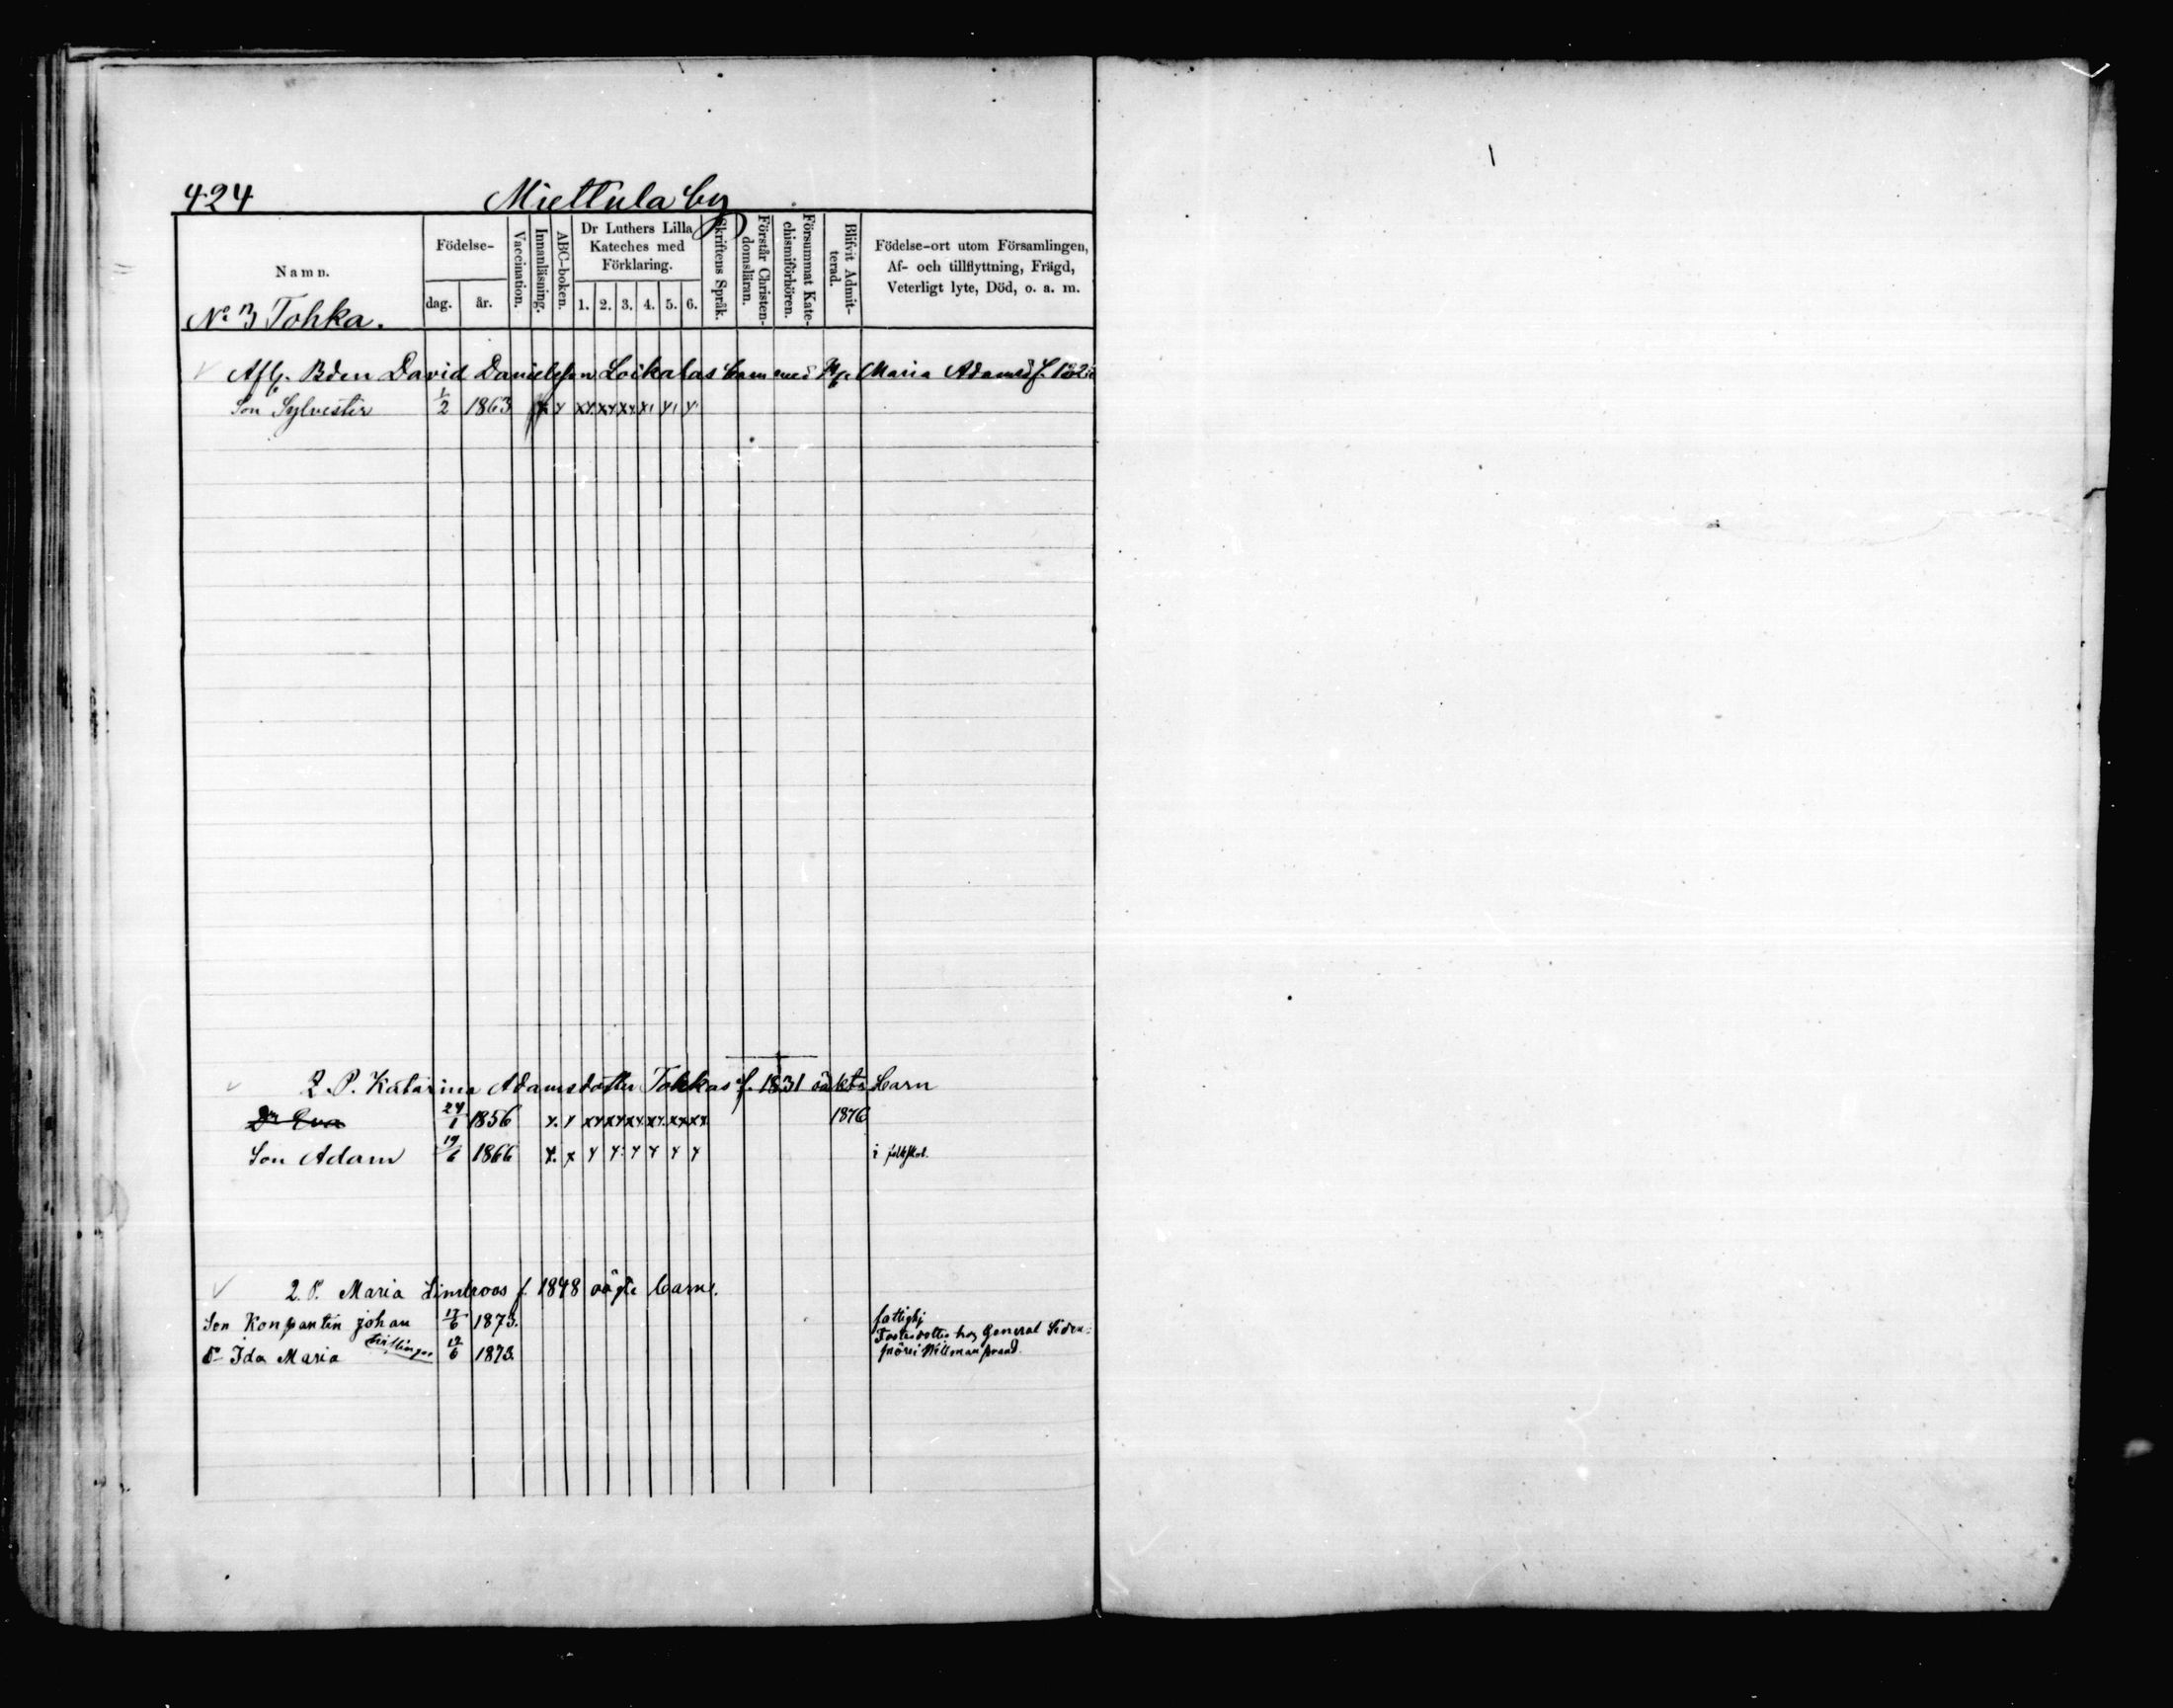 424 Miettula by
Namn.
Födelse-
dag. år.
Vaccination.
Innanläsning.
ABC-boken.
Dr Luthers Lilla
Kateches med
Förklaring.
1. 2. 3. 4. 5. 6.
Skriftens Språk.
Förstår Christen-
domsläran.
Försummat Kate-
chismiförhören.
Blifvit Admit-
terad.
Födelse-ort utom Församlingen,
Af- och tillflyttning, Frägd,
Veterligt lyte, Död, o. a. m.
No 3 Tohka.
Bden David Danielsson Loikalas barn med Maria Adamsd f.
Son Sylvester 1/2 1863 x x xx xx xx x x x
Q. P. Katarina Adamsdotter Tohkas f. 1831 oäkta barn
Dr Eva 24/1 1856 x. x xx xx xx xx xx xx 1876
Son Adam 19/6 1866 x. x x x x x x x i folkskol.
Q. P. Maria Lindroos f. 1848 oägte barn.
Son Konstantin Johan 17/6 1873. fattighj
tvillingar Fosterdotter hos General Siden:
Dr Ida Maria 17/6 1873.